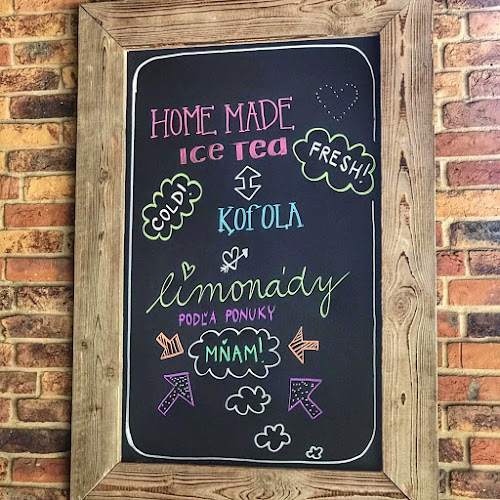 HOME MADE
ICE TEA
FRESH!
COLD!
KOFOLA
limonády
PODĽA PONUKY
MŇAM!